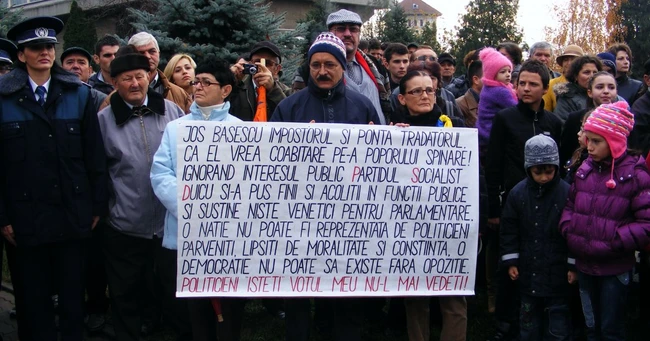 JOS BASESCU IMPOSTORUL SI PONTA TRADATORUL
CA EL VREA COABITARE PE-A POPORULUI SPINARE!
IGNORAND INTERESUL PUBLIC PARTIDUL SOCIALIST
DUICU SI-A PUS FINII SI ACOLITII IN FUNCTII PUBLICE
SI SUSTINE NISTE VENETICI PENTRU PARLAMENTARE,
O NATIE NU POATE FI REPREZENTATA DE POLITICIENI
PARVENITI, LIPSITI DE MORALITATE SI CONSTIINTA, O
DEMOCRATIE NU POATE SA EXISTE FARA OPOZITIE.
POLITICIENI ISTETI VOTUL MEU NU-L MAI VEDETI!